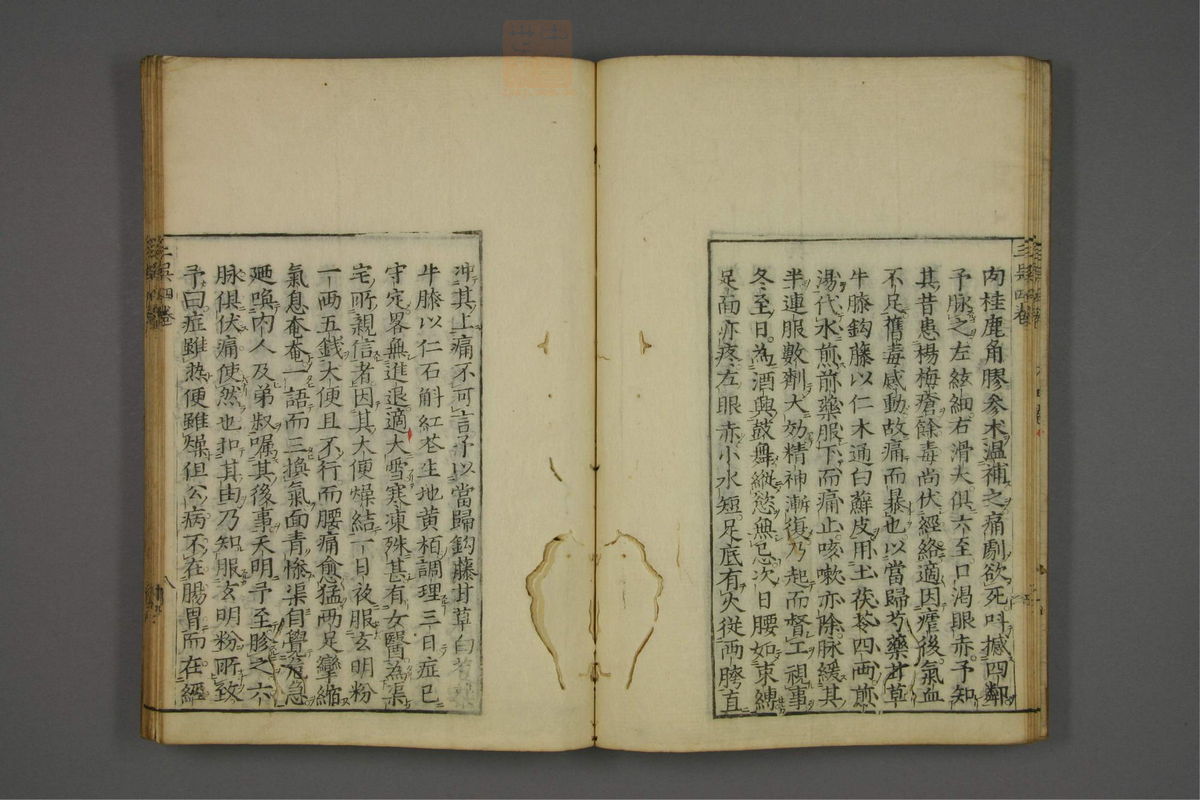 肉桂鹿角膠參术溫補之痛劇欲死呌撼四鄰
予脉之左絃細右滑大俱六至口渴眼赤予知
其昔患楊梅瘡餘毒尚伏經絡適因瘧後氣血
不足舊毒感動故痛而暴也以當歸芍藥甘草
牛膝鈎藤以仁木通白蘚皮用土茯苓四兩煎
湯代水煎前藥服下而痛止咳嗽亦除脉緩其
半連服數劑大効精神漸復乃起而督工視事
冬至日為酒興鼓舞縱慾無忌次日腰如束縛
足面亦疼左眼赤小水短足底有火從兩胯直
冲其上痛不可言予以當歸鈎藤甘草白芍
牛膝以仁石斛紅花生地黄柏調理三日症已
守定畧無進退適大雪寒凍殊甚有女醫為渠
宅所親信者因其大便燥結一日夜服玄明粉
一兩五錢大便且不行而腰痛愈猛兩足攣縮
氣息奄奄一語而三換氣面青慘渠自覺危急
廼喚內人及弟叔囑其後事天明予至胗之六
脉俱伏痛使然也扣其由乃知服玄明粉所致
予曰症雖熱便雖燥但公病不在腸胃而在經
三吳四卷
八